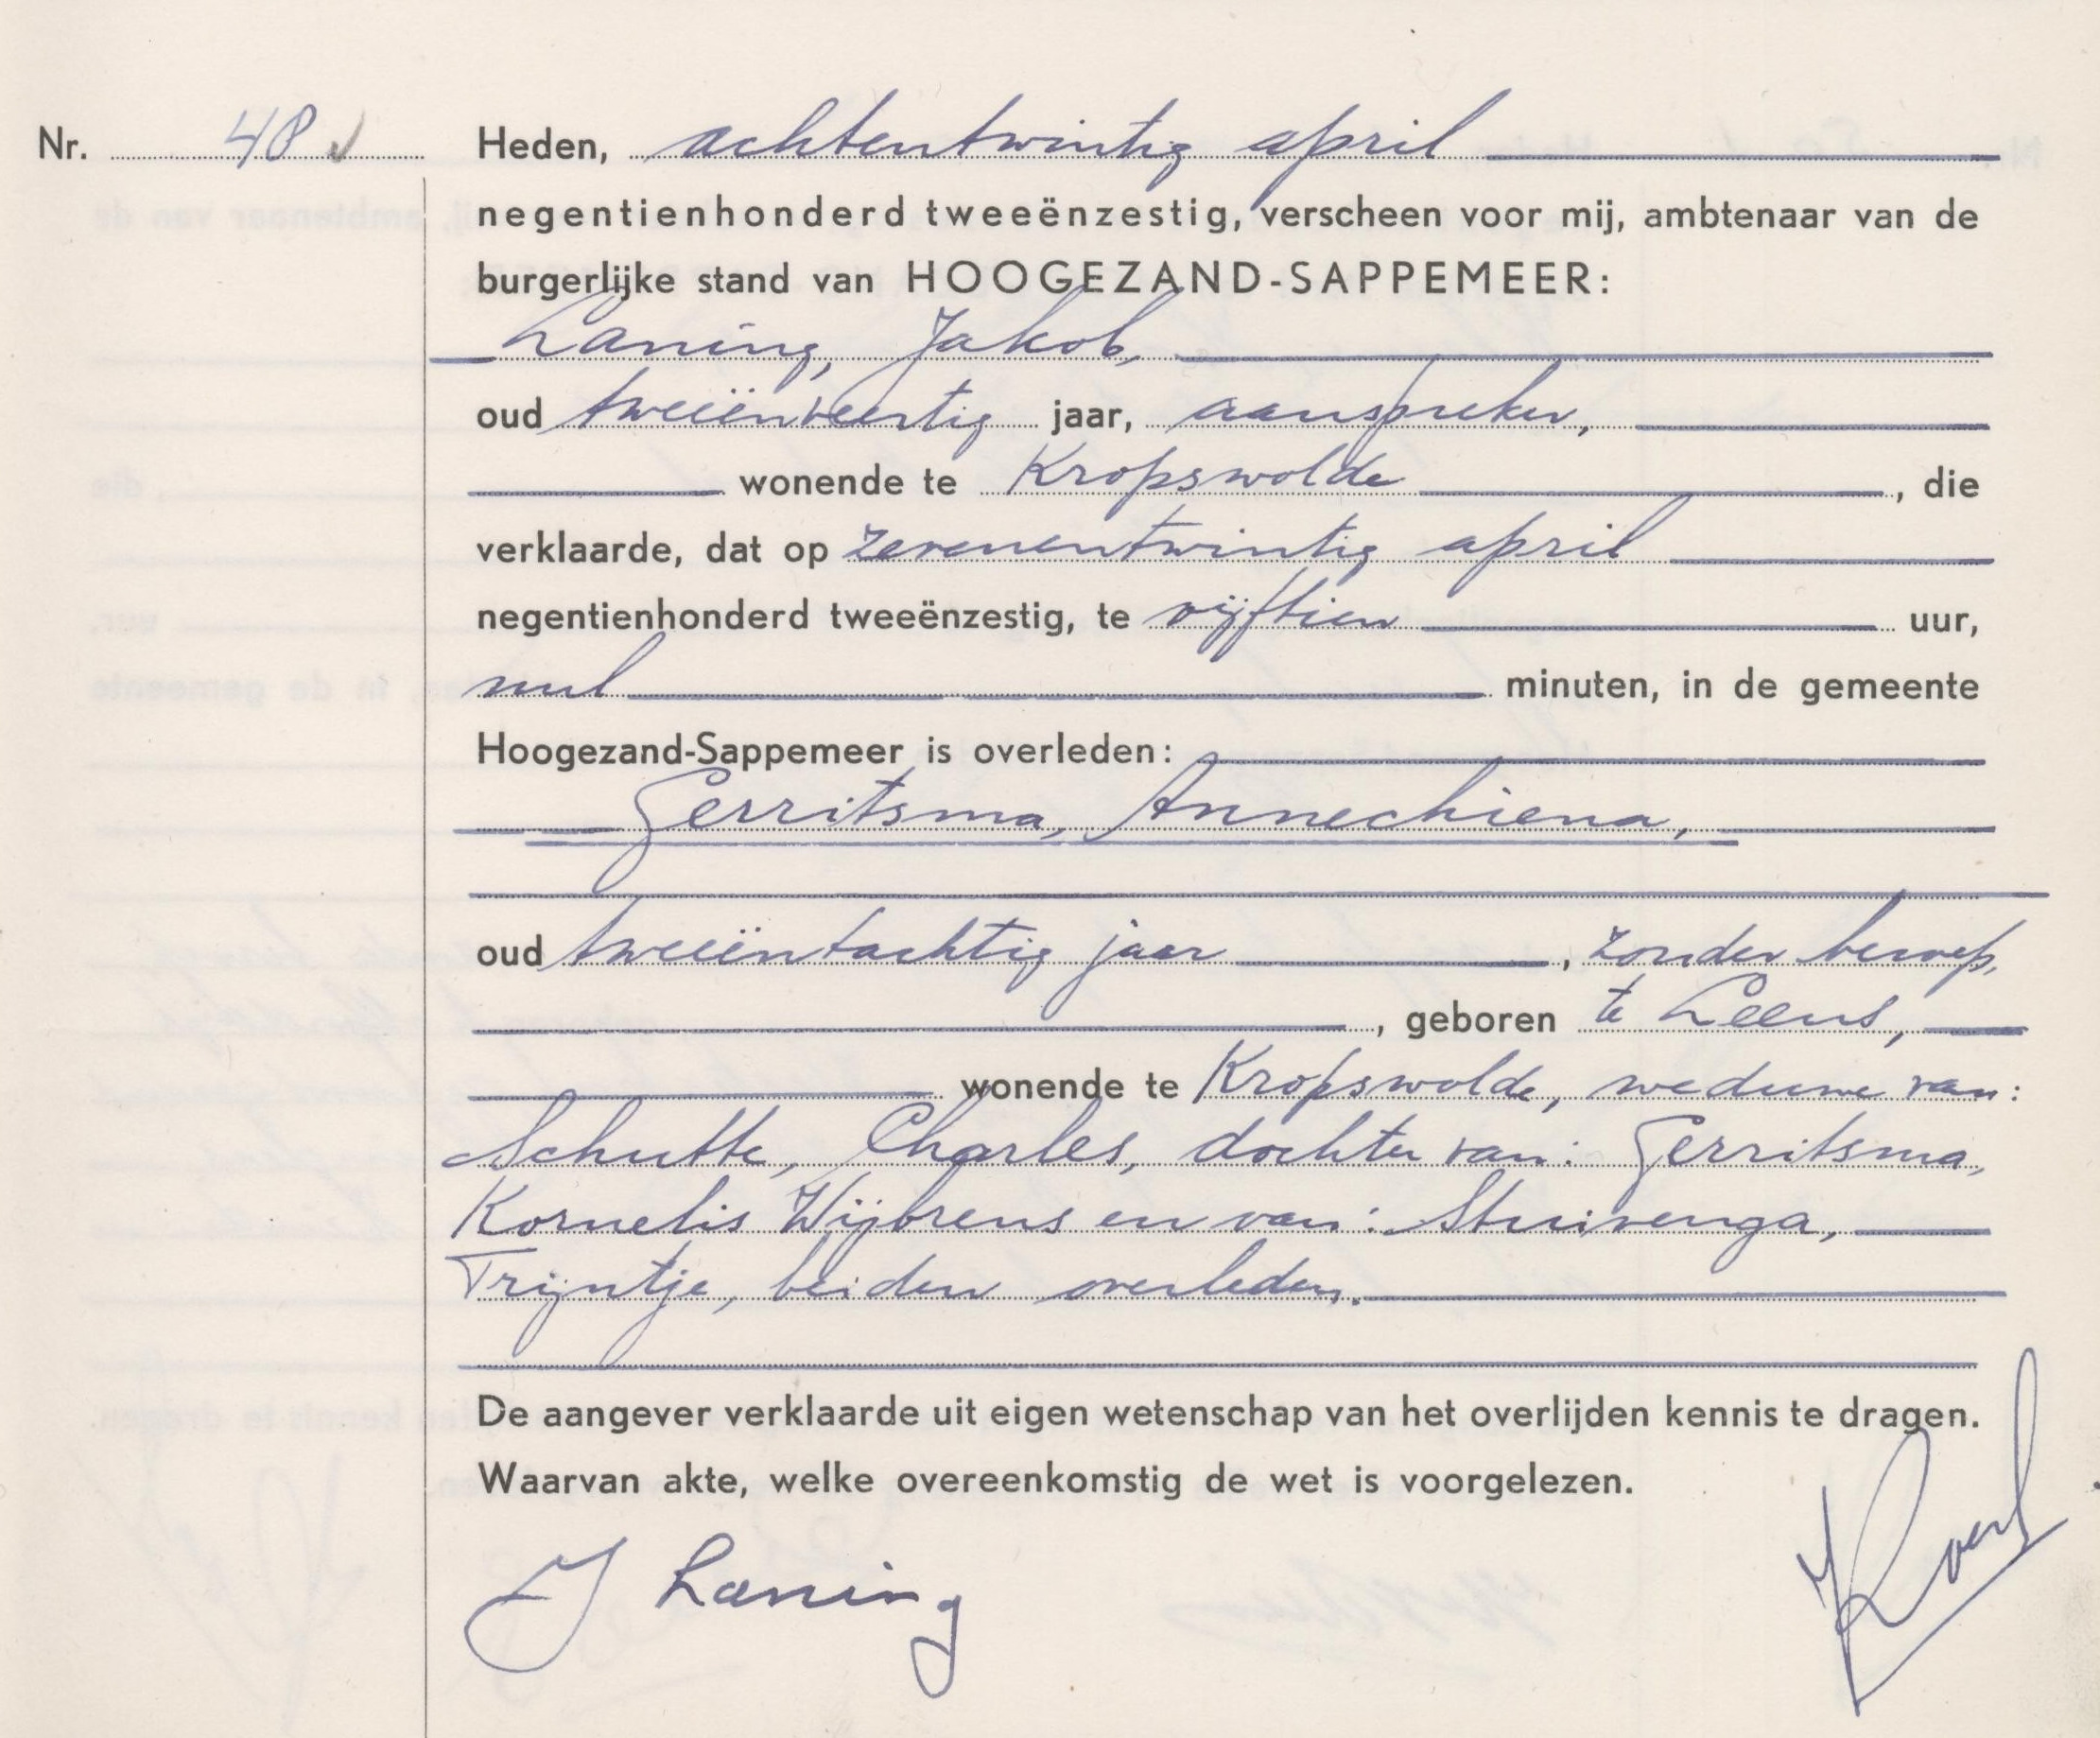 Nr. 48 Heden, achtentwintig april
negentienhonderd tweeënzestig, verscheen voor mij, ambtenaar van de
burgerlijke stand van HOOGEZAND-SAPPEMEER:
Laning, Jakob,
oud tweeënveertig jaar, aanspreker,
wonende te Kropswolde, die
verklaarde, dat op zevenentwintig april
negentienhonderd tweeënzestig, te vijftien uur,
nul minuten, in de gemeente
Hoogezand-Sappemeer is overleden:
Gerritsma, Annechiena,
oud tweeëntachtig jaar, zonder beroep,
, geboren te Leens,
wonende te Kropswolde, weduwe van:
Schutte, Charles, dochter van: Gerritsma,
Kornelis Wijbrens en van: Stuivenga,
Trijntje, beiden overleden.
De aangever verklaarde uit eigen wetenschap van het overlijden kennis te dragen.
Waarvan akte, welke overeenkomstig de wet is voorgelezen.
J Laning